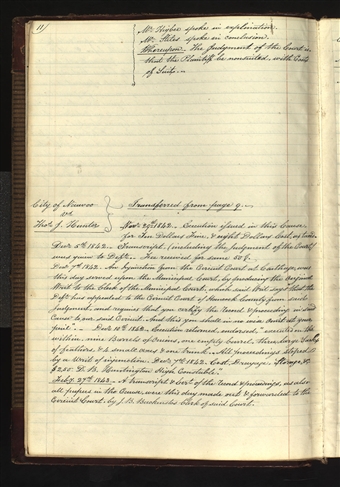 11
Mr. Higbee spoke in explanation.
Mr. Stiles spoke in conclusion.
Whereupon. The Judgment of the Court is,
that the Plaintiff be nonsuited, with Costs
of Suit.
City of Nauvoo
vs
Thos. J. Hunter
Transferred from page 9.
Nov. 29th 1842. Execution issued in this Cause
for Ten Dollars Fine, & eight Dollars Cost, as taxed.
Decr. 5th 1842. Transcript (including the Judgment of the Court)
was given to Deft. Fee received for same 50¢.
Decr. 7th 1842. An Injunction from the Circuit Court at Carthage, was
this day served upon the Municipal Court, by furnishing the
Writ to the Clerk of the Municipal Court, which said Writ says "that the
Deft has appealed to the Circuit Court of Hancock County from said
Judgment, and requires that you certify the Record & proceeding in said
Cause to our said Circuit. And this you shall in no wise omit at your
peril". Decr. 10th 1842. Execution returned, endorsed, "executed on the
within, nine Barrels of Onions, one empty barrel, three large
of feathers, & 2 small ones & one Trunk. All proceedings stopped
by a Writ of injunction. Decr. 7th 1842. Cost, Drayage, Storage, &c
$2.25. D. B. Huntington High Constable."
Feby. 27th 1843. A transcript & Cert. of the Record & proceedings, as also
all papers in the Cause, were this day made out & forwarded to the
Circuit Court, by J. B. Backenstos Clerk of said Court.